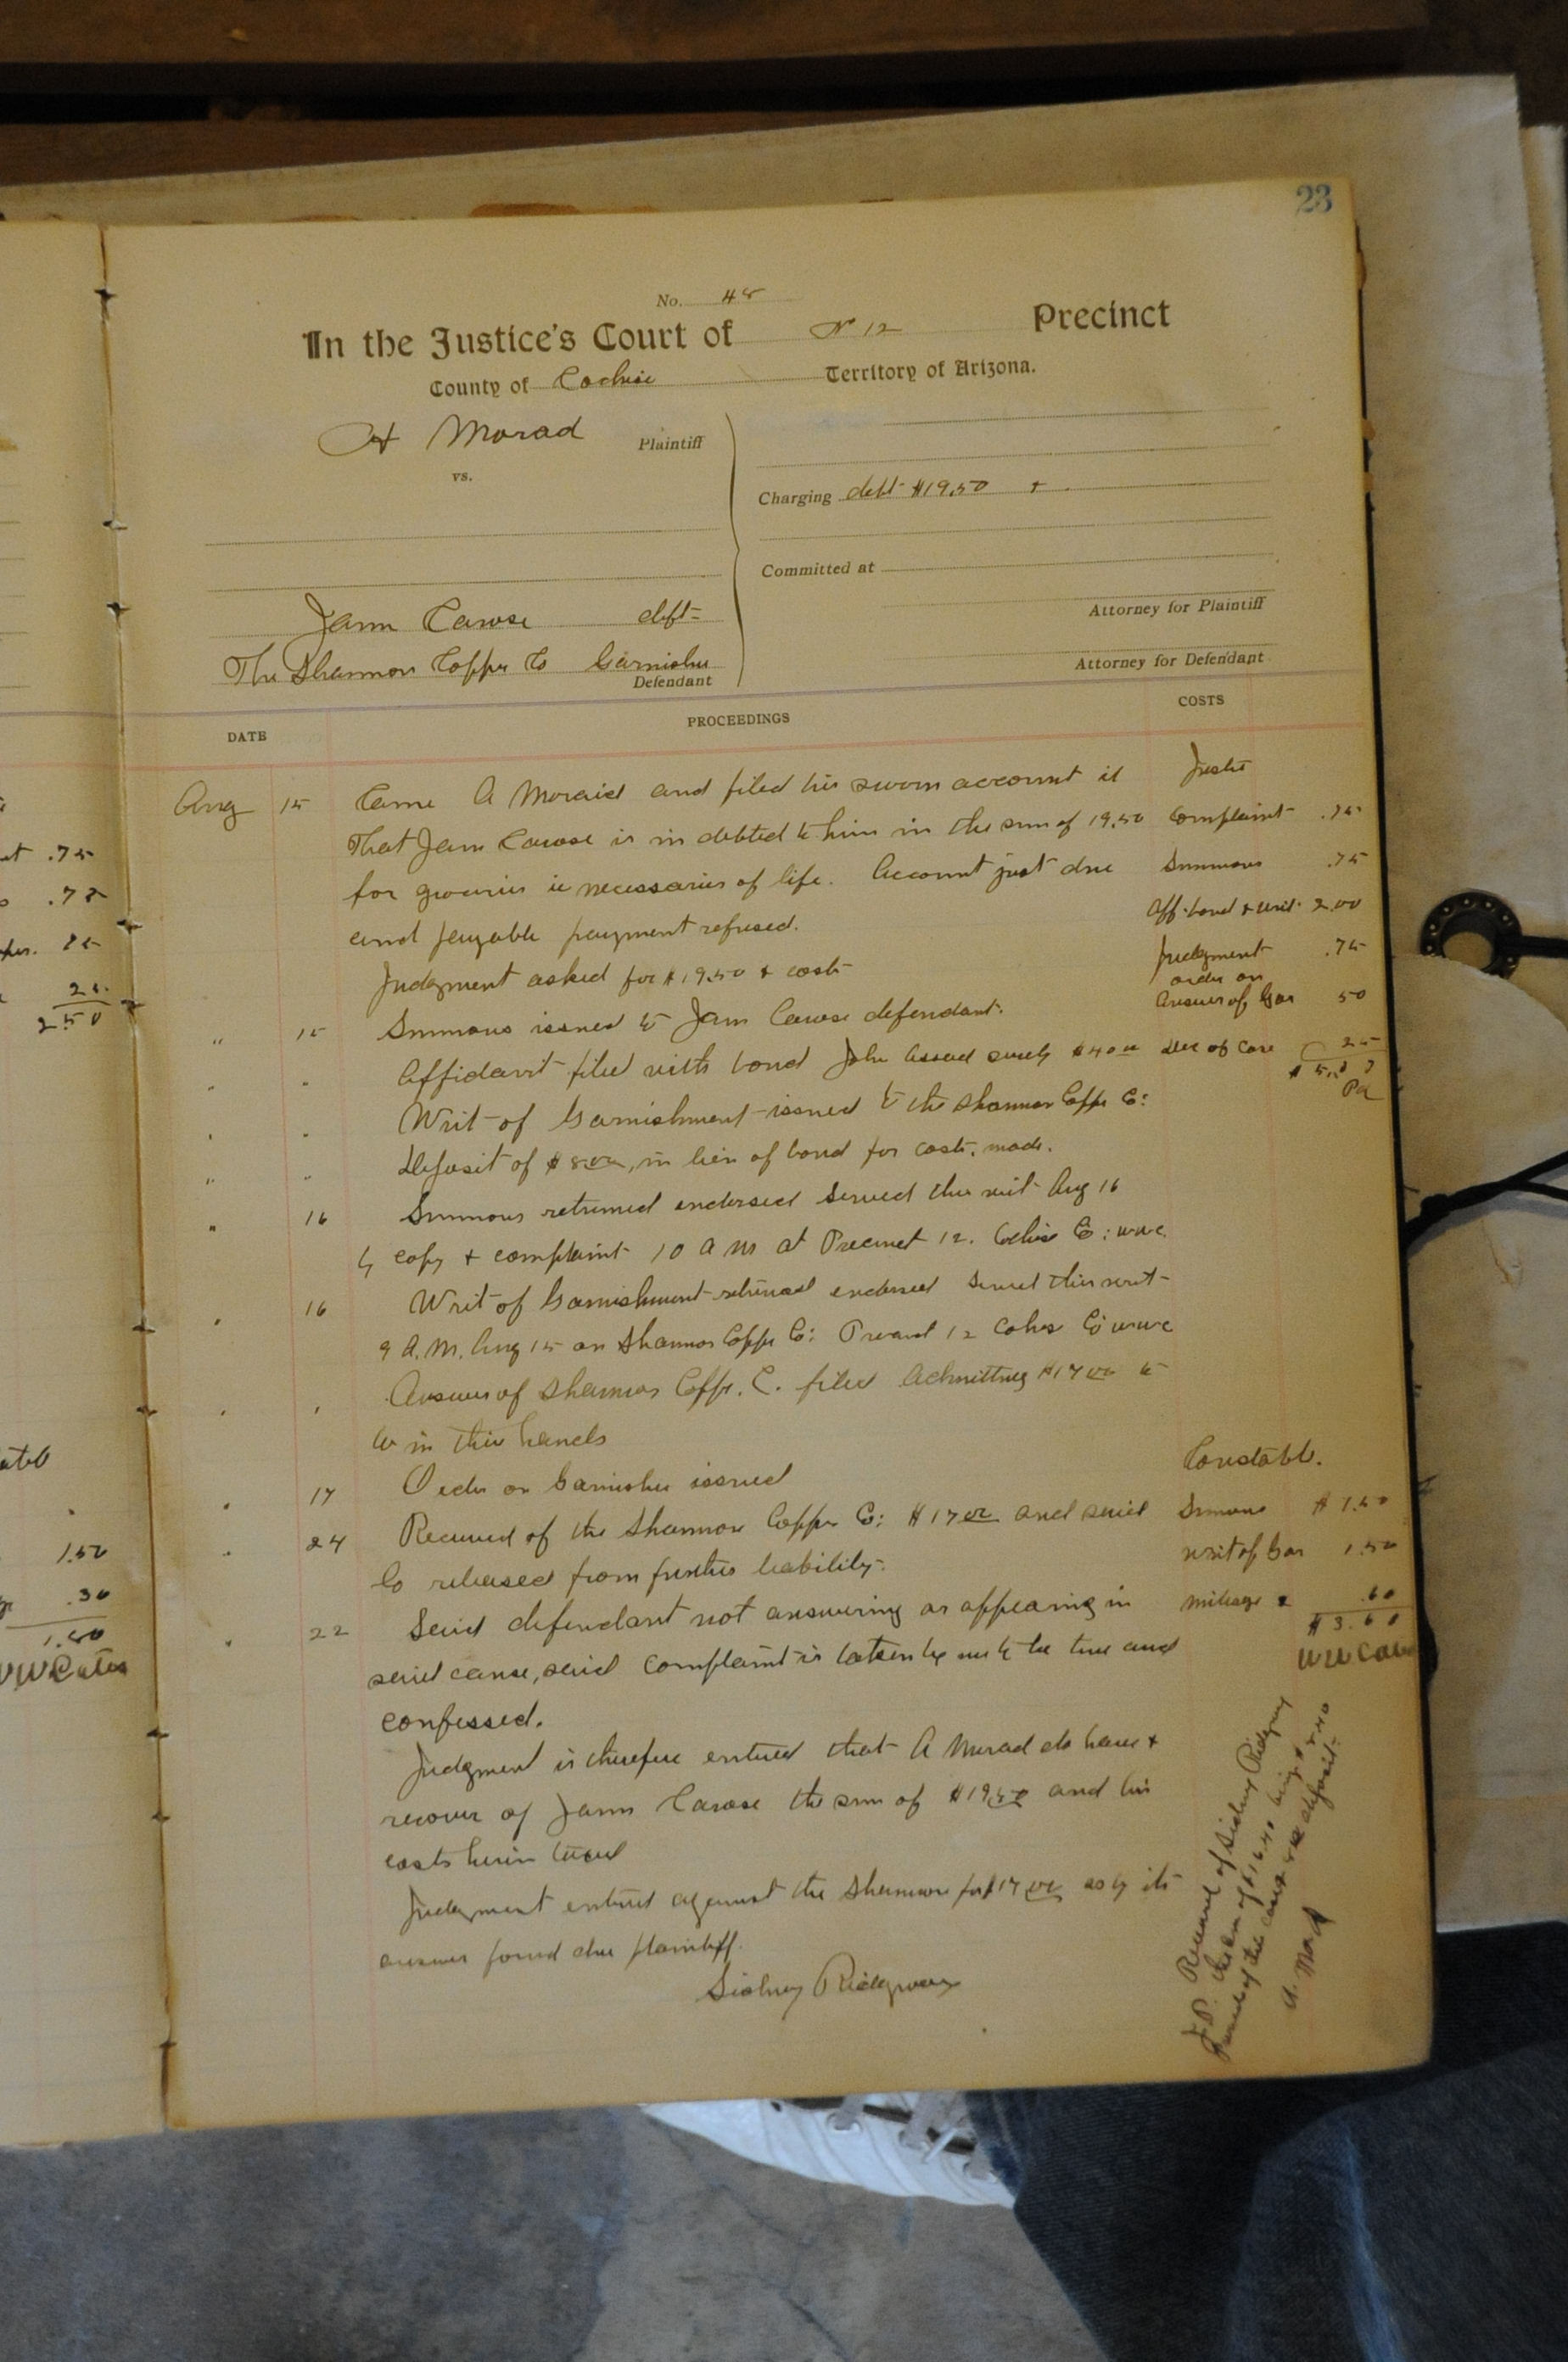 23
No. 48
In the Justice's Court of No 12 Precinct
County of Cochise Territory of Arizona.
A Morad Plaintiff
vs.
Charging debt $19.50 +
Committed at
Attorney for Plaintiff
Jann Carose deft
The Shannon Copper Co Garnishee
Defendant
Attorney for Defendant
DATE PROCEEDINGS COSTS
Aug 15 Came A Moraid and filed his sworn account
That Jann Carose is in debted to him in the sum of 19.50
for groceries ie necessaries of life. Account just due
and payable payment refused.
Judgment asked for $19.50 & costs
" 15 Summons issued to Jann Carose defendant.
" " Affidavit filed with bond John Assad surety $40.00
" " Writ of Garnishment issued to the Shannon Copper Co:
" " Deposit of $8.00, in lieu of bond for costs, made.
" 16 Summons returned endorsed Served this writ Aug 16
by copy & complaint 10 A M at Precinct 12. Cochise Co: WWC.
" 16 Writ of Garnishment returned endorsed Served this writ
9 A.M. Aug 15 on Shannon Copper Co: Precinct 12 Cochise Co WWC
" " Answer of Shannon Copper C. filed Admitting $17.00 to
be in their hands
" 17 Order on Garnishee issued
" 24 Received of the Shannon Copper Co: $17.00 and said
Co released from further liability.
" 22 Said defendant not answering or appearing in
said cause, said complaint is taken by me to be true and
confessed.
Judgment is therefore entered that A Morad do have &
recover of Jann Carose the sum of $19.50 and his
costs herein taxed
Judgment entered against the Shannon for $17.00 as by its
answer found due plaintiff.
Sidney Ridgway
Justice
Complaint .75
Summons .75
Aff. bond & writ 2.00
Judgment .75
order on
Answer of Gar 50
Constable.
Summons $1.50
Writ of Gar 1.50
mileage .60
$3.60
WW Cates
Received of Sidney Ridgway
J.P. the sum of $16.40 being
deposit.
1.50
.30
WW Cates
.75
2.50